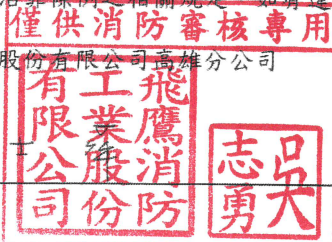 僅供消防審核專用
股份有限公司高雄分公司
飛鷹消防
工業股份
有限公司
吳志勇